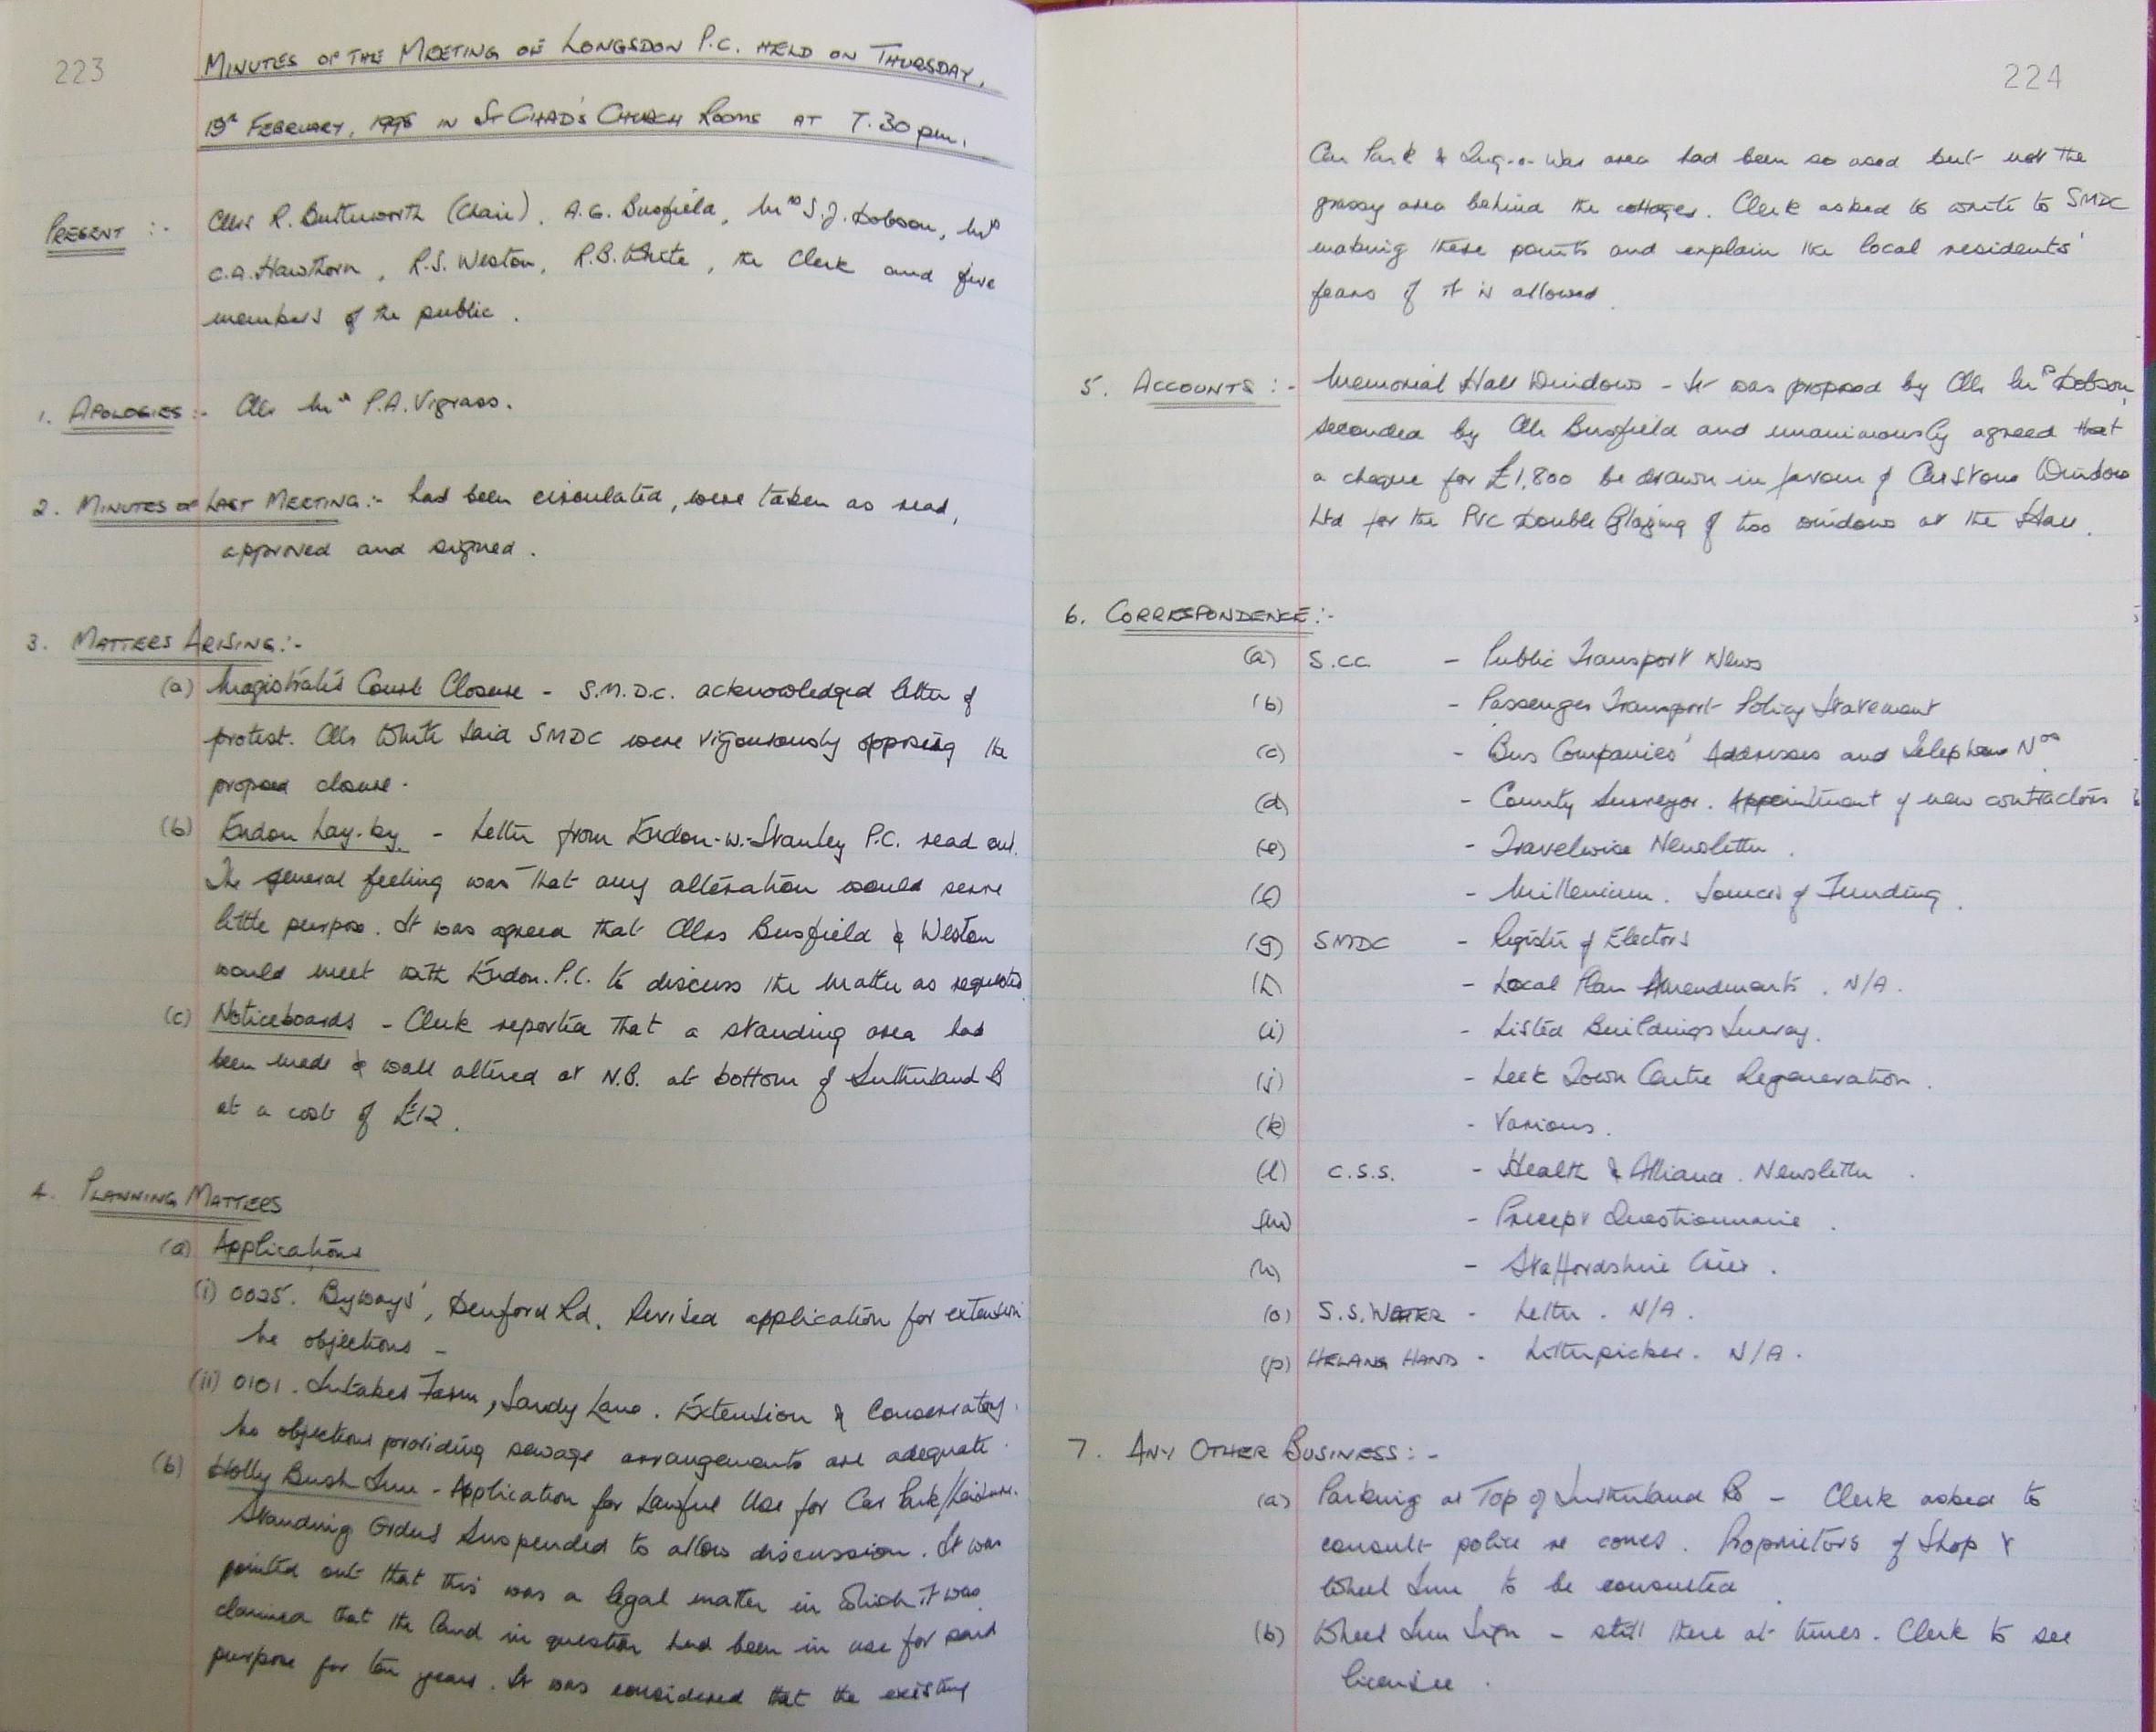 223
MINUTES OF THE MEETING OF LONGSDON P.C. HELD ON THURSDAY,
19th FEBRUARY, 1998 IN ST CHAD'S CHURCH ROOMS AT 7.30 pm.
PRESENT :- Cllrs R. Butterworth (Chair), A.G. Busfield, Mrs S.J. Dobson, Mrs
C.A. Hawthorn, R.S. Weston, R.B. White, the Clerk and five
members of the public.
1. APOLOGIES :- Cllr Mrs P.A. Vigrass.
2. MINUTES OF LAST MEETING :- had been circulated, were taken as read,
approved and signed.
3. MATTERS ARISING :-
(a) Magistrates Court Closure - S.M.D.C. acknowledged letter of
protest. Cllr White said SMDC were vigourously opposing the
proposed closure.
(b) Endon Lay-by. - Letter from Endon-w-Stanley P.C. read out.
The general feeling was that any alteration would serve
little purpose. It was agreed that Cllrs Busfield & Weston
would meet with Endon. P.C. to discuss the matter as requested.
(c) Noticeboards - Clerk reported that a standing area had
been made & wall altered at N.B. at bottom of Sutherland Rd
at a cost of £12.
4. PLANNING MATTERS
(a) Applications
(i) 0025. 'Byways', Denford Rd. Revised application for extension
No objections -
(ii) 0101. Intakes Farm, Sandy Lane. Extension & Conservatory.
No objections providing sewage arrangements are adequate.
(b) Holly Bush Inn - Application for Lawful Use for Car Park/Leisure.
Standing Orders suspended to allow discussion. It was
pointed out that this was a legal matter in which it was
claimed that the land in question had been in use for said
purpose for ten years. It was considered that the existing
224
Car Park & area had been so used but not the
grassy area behind the cottages. Clerk asked to write to SMDC
making these points and explain the local residents'
fears if it is allowed.
5. ACCOUNTS :- Memorial Hall Windows - It was proposed by Cllr Mrs Dobson,
seconded by Cllr Busfield and unanimously agreed that
a cheque for £1,800 be drawn in favour of Windows
Ltd for the PVC Double Glazing of two windows at the Hall.
6. CORRESPONDENCE :-
(a) S.C.C. - Public Transport News
(b) - Passenger Transport Policy Statement
(c) - Bus Companies' Addresses and Telephone Nos
(d) - County Surveyor. Appointment of new contractors
(e) - Travelwise Newsletter.
(f) - Millenium. Sources of Funding.
(g) SMDC - Register of Electors
(h) - Local Plan Amendments. N/A.
(i) - Listed Buildings Survey.
(j) - Leek Town Centre Regeneration.
(k) - Various.
(l) C.S.S. - Health & Alliance. Newsletter.
(m) - Precept Questionnaire.
(n) - Staffordshire
(o) S.S. WATER - Letter. N/A.
(p) HELPING HAND - Litterpicker. N/A.
7. ANY OTHER BUSINESS :-
(a) Parking at Top of Sutherland Rd - Clerk asked to
consult police re cones. Proprietors of Shop &
Wheel Inn to be consulted.
(b) Wheel Inn Sign - still there at times. Clerk to see
licensee.